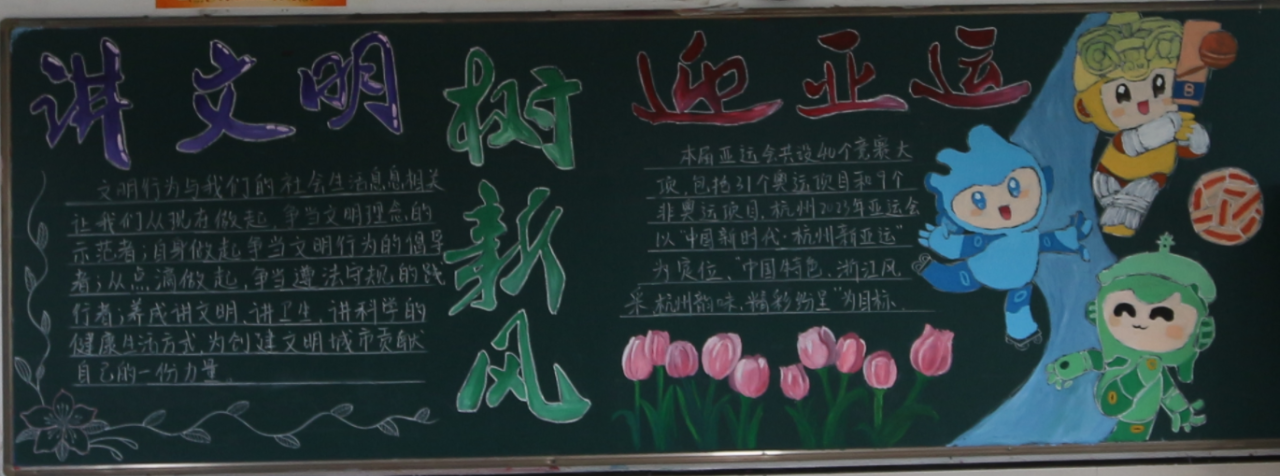 讲文明
树新风
迎亚运
文明行为与我们的社会生活息息相关
让我们从现在做起，争当文明理念的
示范者；自身做起争当文明行为的倡导
者；从点滴做起，争当遵法守规的践
行者；养成讲文明、讲卫生、讲科学的
健康生活方式，为创建文明城市贡献
自己的一份力量。
本届亚运会共设40个竞赛大
项，包括31个奥运项目和9个
非奥运项目，杭州2023年亚运会
以"中国新时代·杭州新亚运"
为定位、"中国特色、浙江风
采、杭州韵味、精彩纷呈"为目标、
B